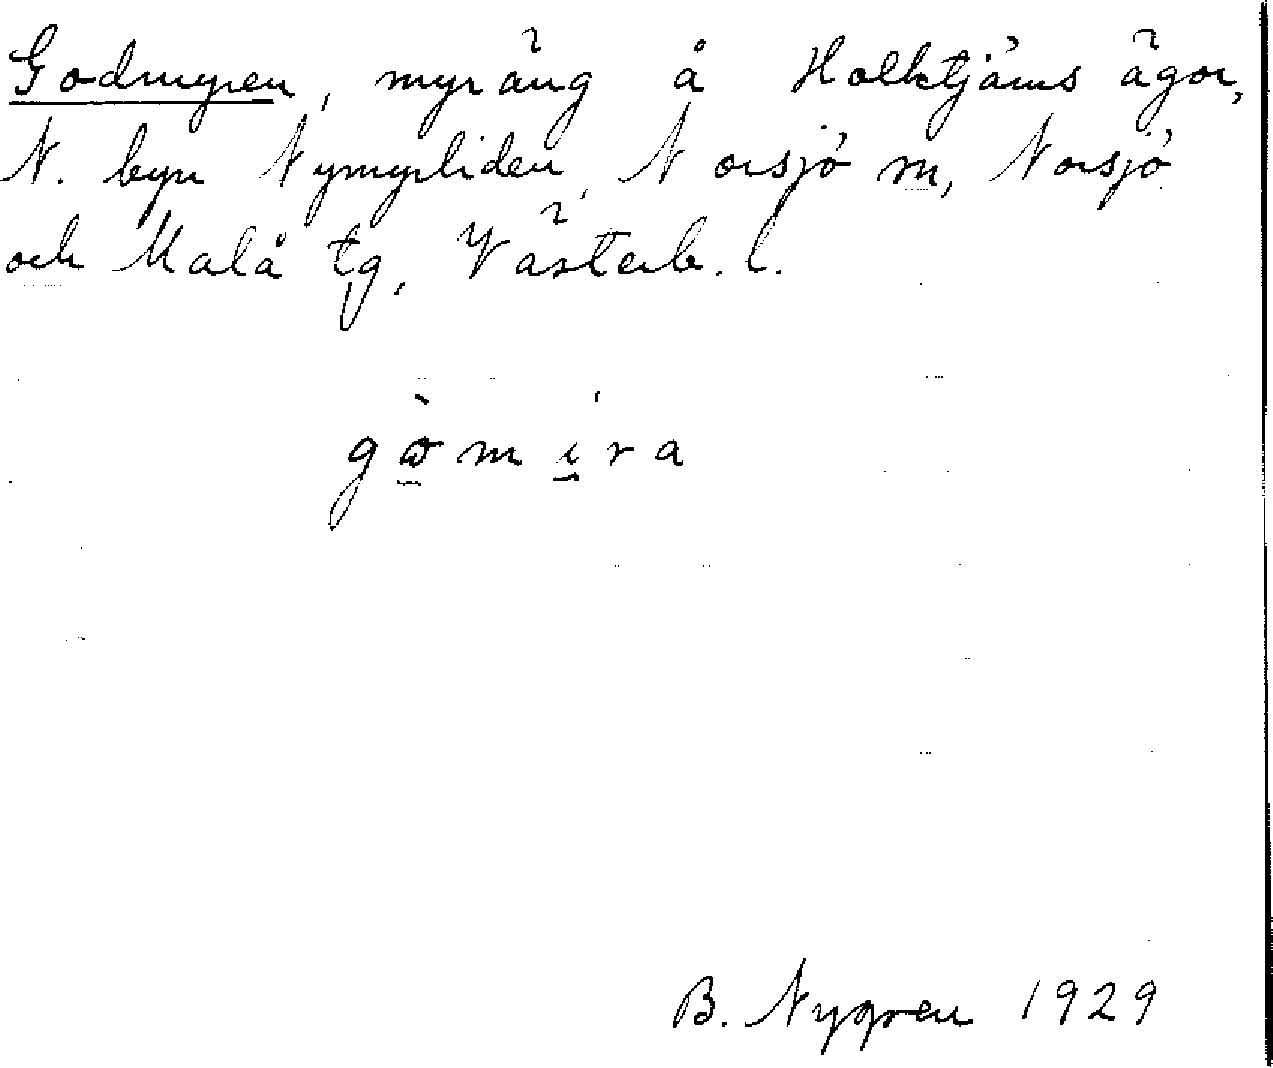 Godmyren, myräng å Holktjärns ägor,
N. byn Nymyrliden, Norsjö sn, Norsjö
och Malå tg, Västerb. l.
B. Nygren 1929